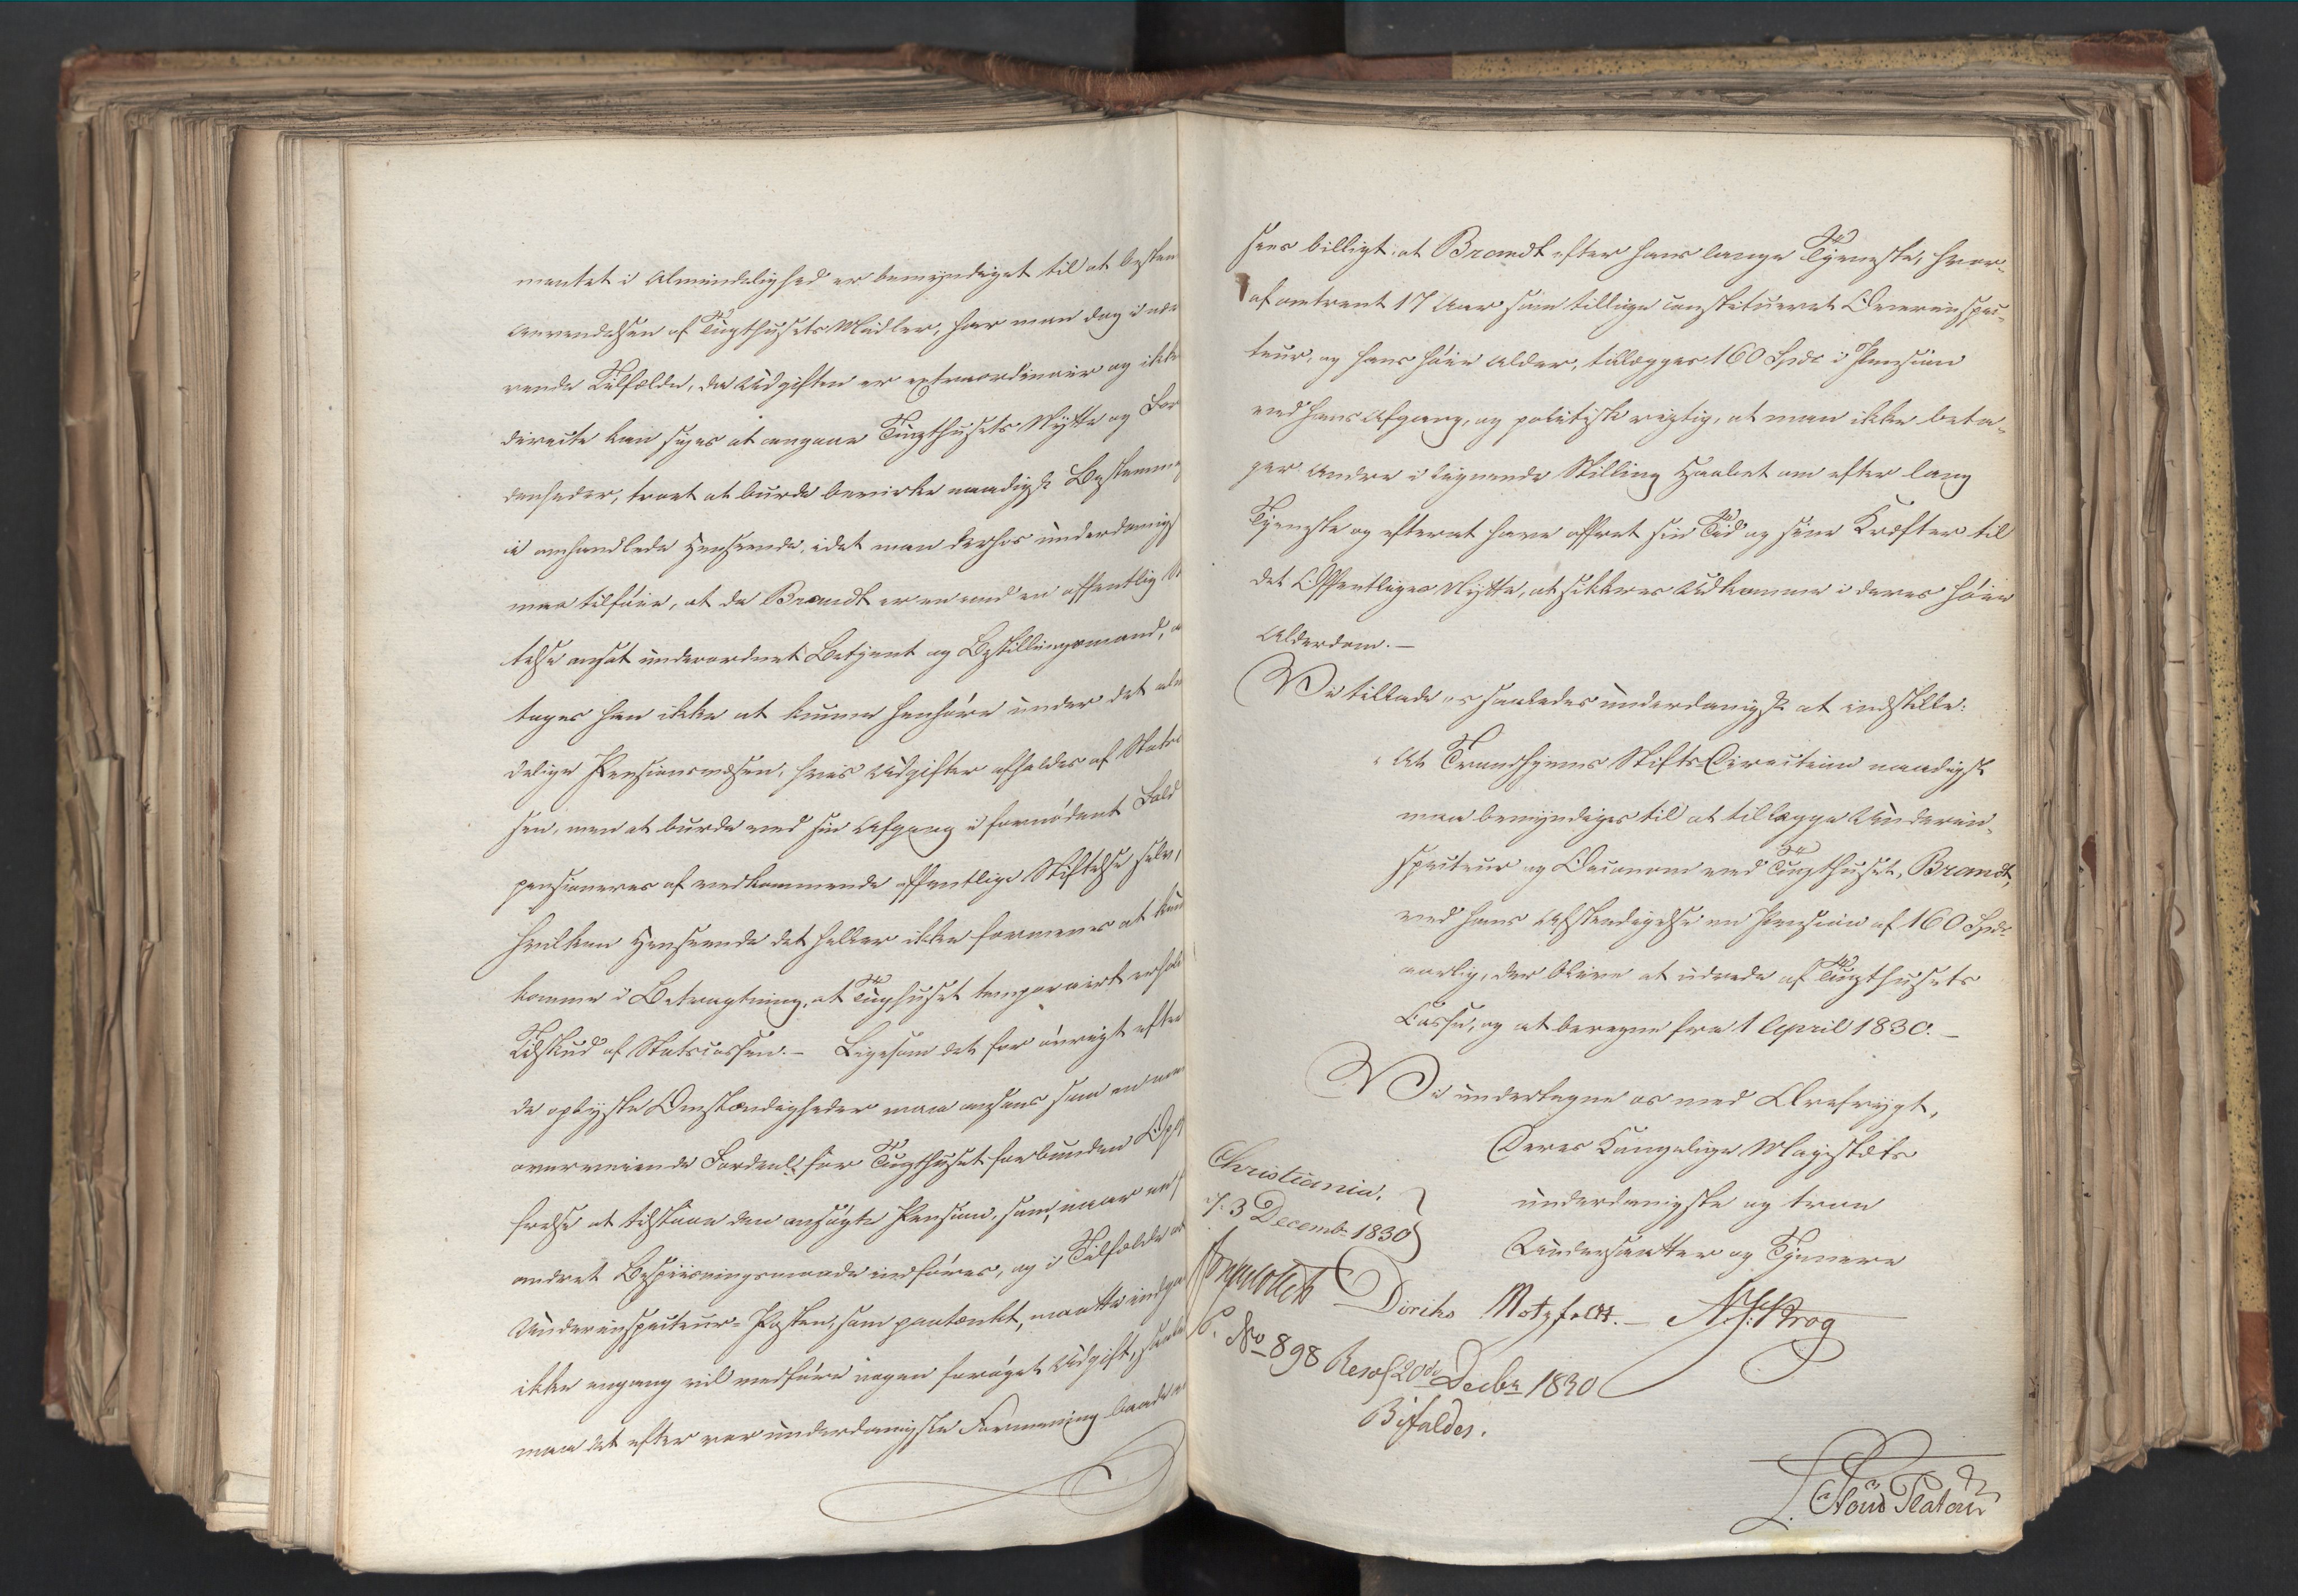 mentet i Almindelighed er bemyndiget til at bestem
Anvendelsen af Tugthusets Midler, har man dog i nær
rende Tilfælde, da Udgiften er extraordinair og ikke
directe kan siges at angaae Tugthusets Nytte og For
denheder, troet at burde bevirke naadigst Bestemmel
i omhandlede Henseende, idet man derhos underdanigst
maa tilføie, at da Brandt er en ved en offentlig St
telse ansat underordnet Betjent og Bestillingsmand, a
tages han ikke at kunne henhøre under det alm
delige Pensionsvæsen, hvis Udgifter afholdes af Statsc
sen, men at burde ved sin Afgang i fornødent Fald
pensioneres af vedkommende offentlige Stiftelse selv, i
hvilken Henseende det heller ikke formenes at kun
komme i Betragtning, at Tugthuset temporairt erhol
Tilskud af Statscassen. – Ligesom det for øvrigt efter
de oplyste Omstændigheder maa ansees som en med
overveiende Fordeel for Tugthuset forbunden Op
frelse at tilstaae den ansøgte Pension, som, naar en f
andret Bespiisningsmaade indføres, og i Tilfælde
Underinspecteur-Posten, som paatænkt, maatte indga
ikke engang vil medføre nogen forøget Udgift, saale
maa det efter vor underdanigste Formening baade
sees billigt, at Brandt efter hans lange Tjeneste, hvor-
af omtrent 17 Aar som tillige constitueret Overinspec-
teur, og hans høie Alder, tillægges 160 Spd i Pension
ved hans Afgang, og politisk rigtig, at man ikke beta-
ger Andre i lignende Stilling Haabet om efter lang
Tjeneste og efterat have offret sin Tid og sine Kræfter til
det Offentliges Nytte, at sikkres Udkomme i deres høie
Alderdom. –
Vi tillade os saaledes underdanigst at indstille:
At Trondhjems Stifts-Direction naadigst
maa bemyndiges til at tillægge Underin-
specteur og Oeconom ved Tugthuset, Brandt,
ved hans Afskedigelse en Pension af 160 Spd
aarlig, der bliver at udrede af Tugthusets
Casse, og at beregne fra 1 April 1830. –
Vi undertegne os med Ærefrygt,
Deres Kongelige Majestæts
underdanigste og troe
Undersaatter og Tjenere
Christiania,
d. 3 Decemb. 1830
Diriks Motzfeldt. – N. J. Krog
P. No 898 Resol 20de Decbr 1830
Bifaldes.
L. Stoud Platou